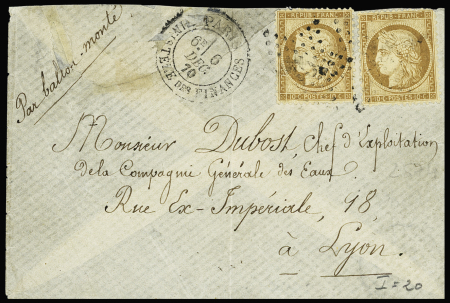 Par ballon monté
PARIS
6E 6
DEC.
70
TÈRE DES FINANCES
REPUB. FRANC.
10 C. POSTES 10 C.
REPUB. FRANC.
10 C. POSTES 10 C.
Monsieur Dubost Chef d'Exploitation
de la Compagnie Générale des Eaux.
Rue Ex-Impériale, 18
à Lyon.
I = 20